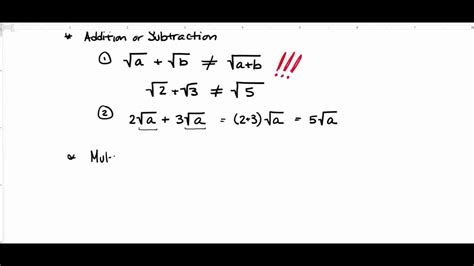 * Addition or Subtraction
① √a + √b ≠ √a+b !!!
√2 + √3 ≠ √5
② 2√a + 3√a = (2+3)√a = 5√a
* Mul